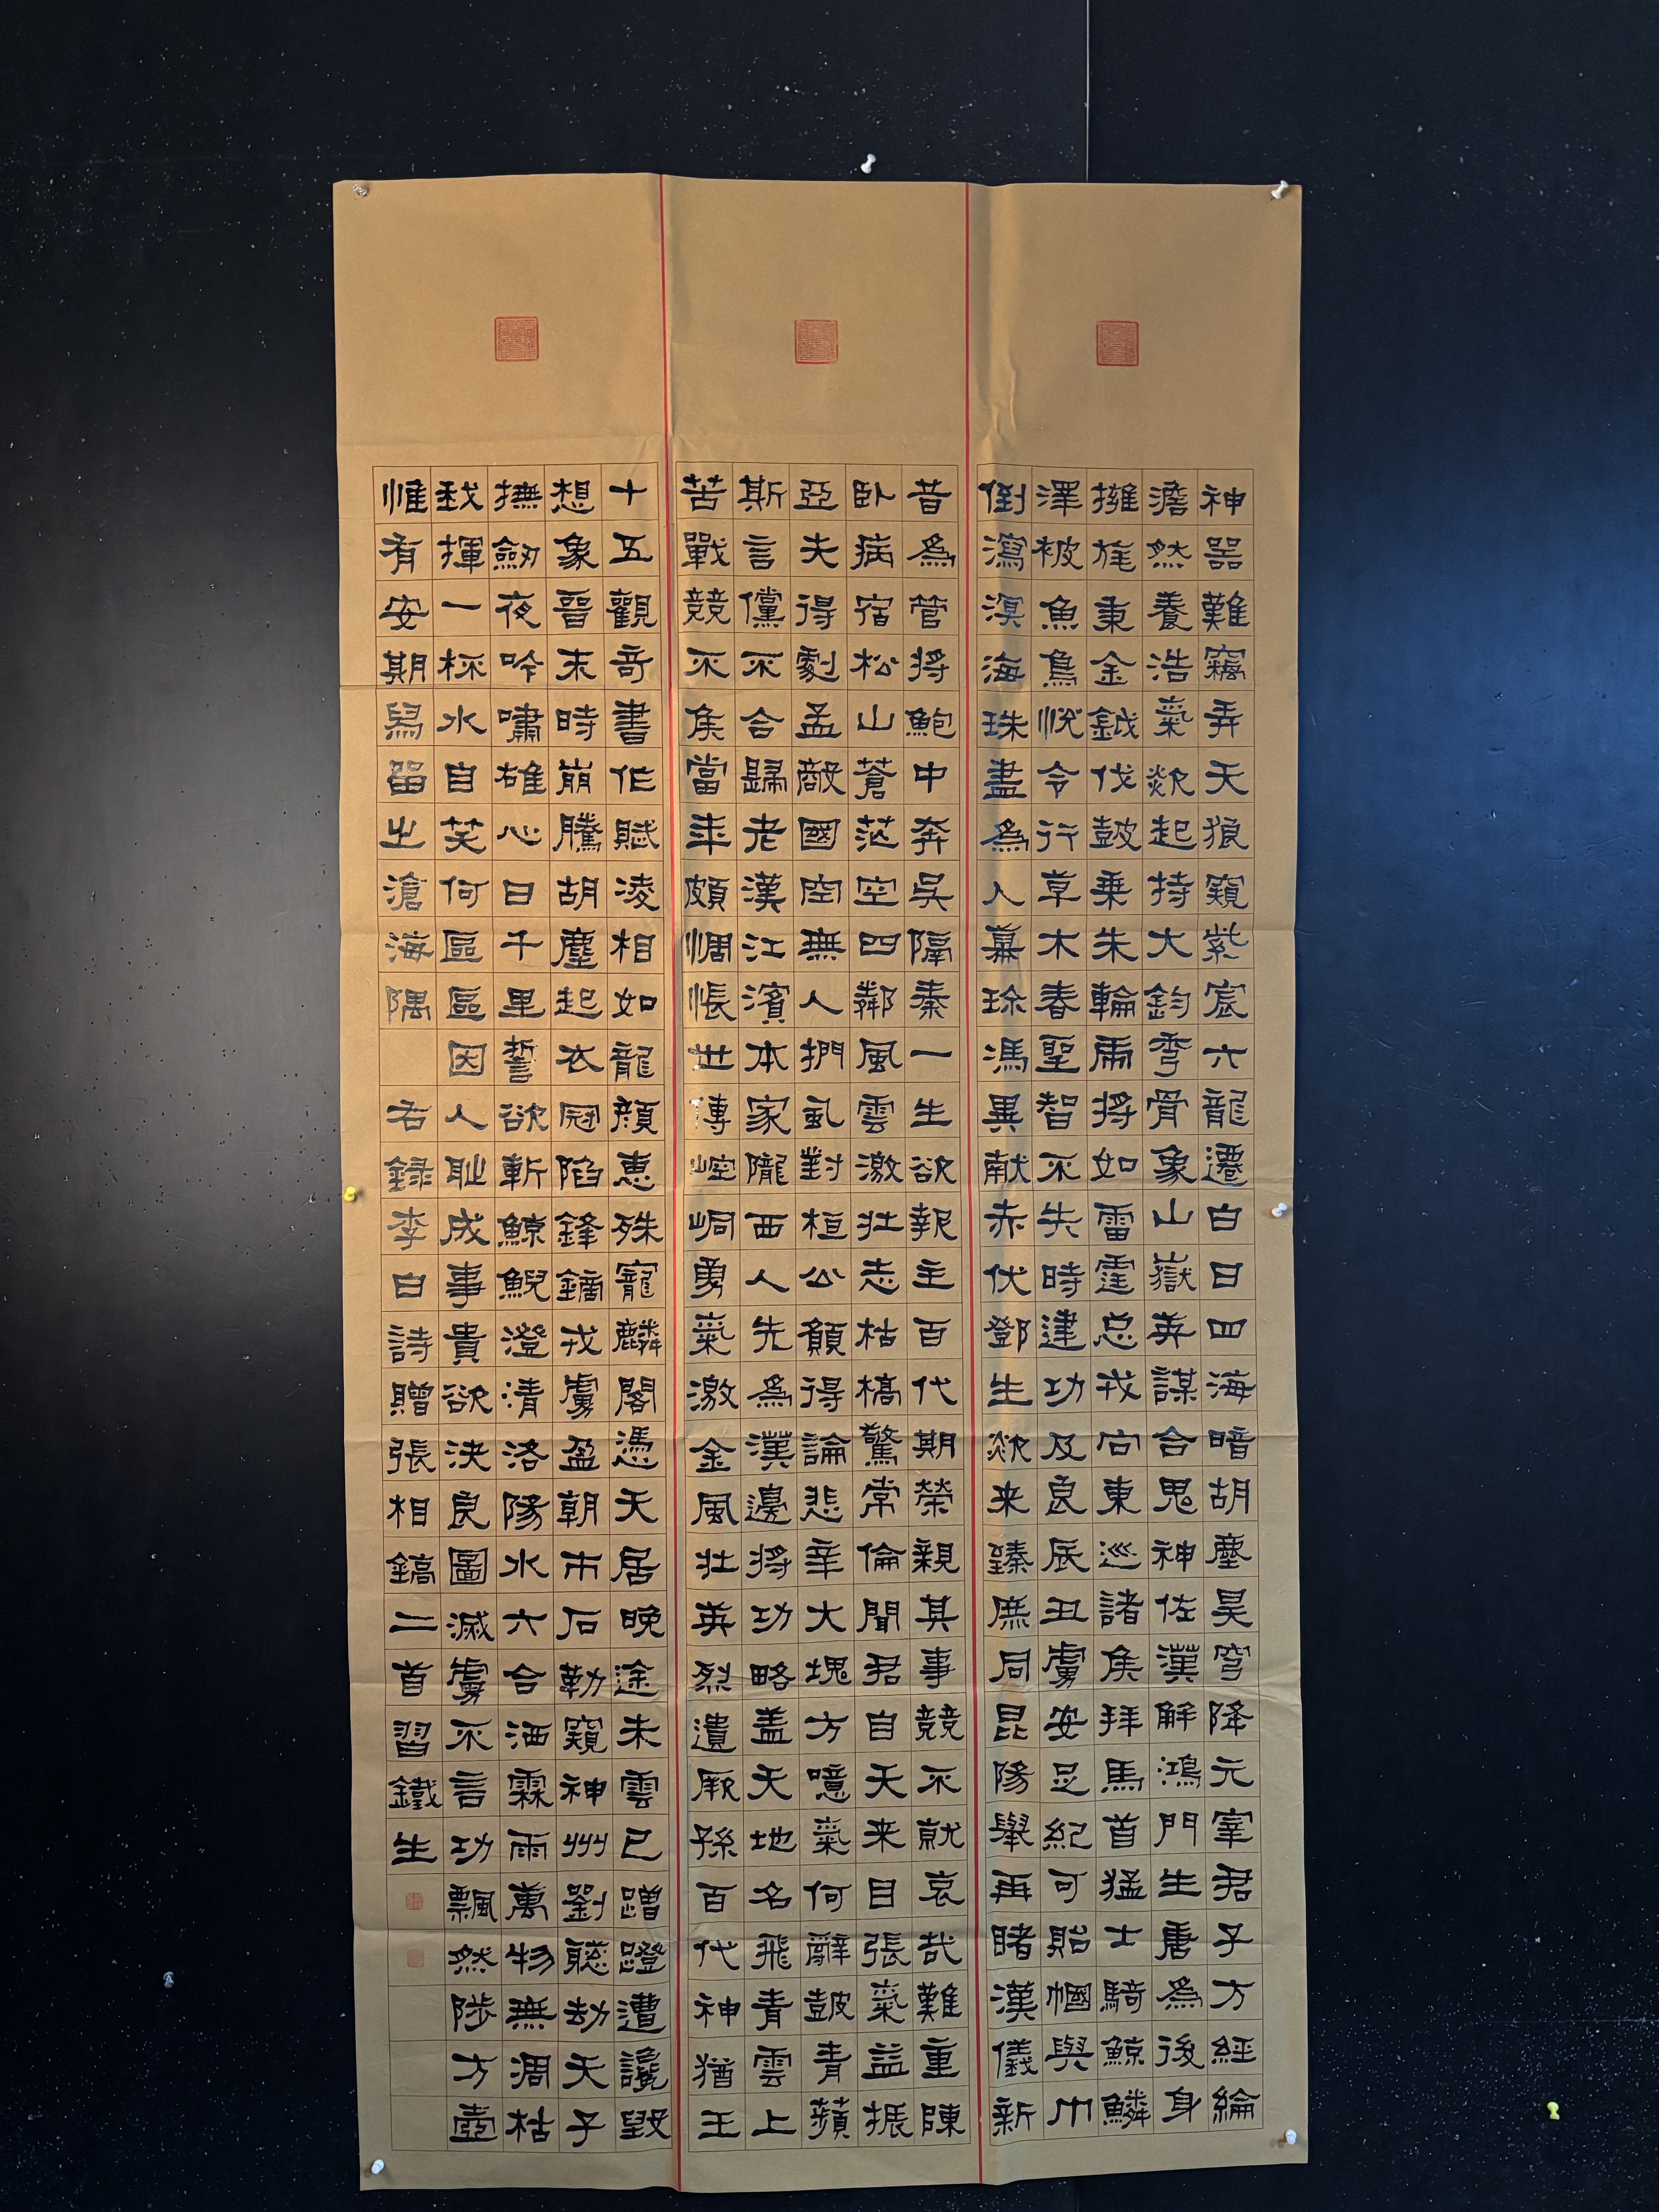 神器難竊弄天狼窺紫宸六龍遷白日四海暗胡塵昊穹降元宰君子方經綸
澹然養浩氣欻起持大鈞秀骨象山嶽英謀合鬼神佐漢解鴻門生唐為後身
擁旄秉金鉞伐鼓乘朱輪虎將如雷霆总戎向東巡諸侯拜馬首猛士騎鯨鱗
澤被魚鳥悅令行草木春聖智不失時建功及良辰丑虜安足紀可貽幗與巾
倒瀉溟海珠盡為入幕珍馮異献赤伏鄧生欻来臻庶同昆陽舉再睹漢儀新
昔為管將鮑中奔吳隔秦一生欲報主百代期榮親其事競不就哀哉難重陳
臥病宿松山蒼茫空四鄰風雲激壯志枯槁驚常倫聞君自天来目張氣益振
亞夫得劇孟敵國空無人捫虱對桓公願得論悲辛大塊方噫氣何辭鼓青蘋
斯言儻不合歸老漢江濱本家隴西人先為漢邊將功略盖天地名飛青雲上
苦戰競不侯當年頗惆悵世傳崆峒勇氣激金風壯英烈遺厥孫百代神猶王
十五觀奇書作賦凌相如龍顏惠殊寵麟閣憑天居晚途未雲已蹭蹬遭讒毀
想象晉末時崩騰胡塵起衣冠陷鋒鏑戎虜盈朝市石勒窺神州劉聰劫天子
撫劍夜吟嘯雄心日千里誓欲斬鯨鯢澄清洛陽水六合洒霖雨萬物無凋枯
我揮一杯水自笑何區區因人恥成事貴欲決良圖滅虜不言功飄然陟方壺
惟有安期舄留之滄海隅 右録李白詩贈張相鎬二首習鐵生